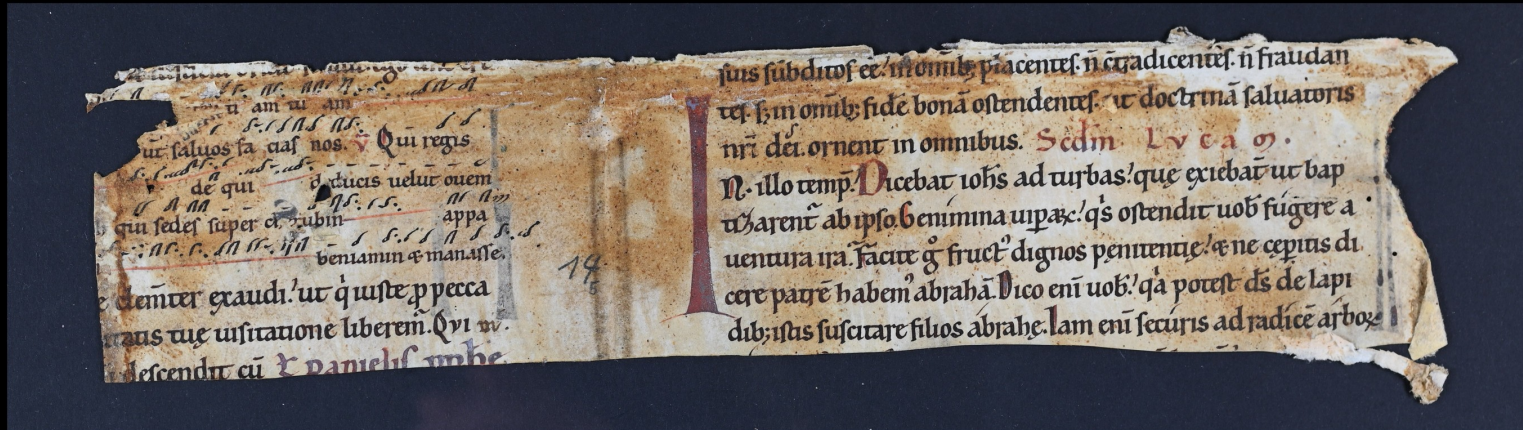 ti am tu am
ut saluos fa cias nos. v̄ Qui regis
de qui deducis uelut ouem
qui sedes super cherubin appa
beniamin & manasse.
clem̄ter exaudi. ut q̇ iuste ꝓ pecca
tatis tuę uisitatione liberem̄. Qvi
descendit cū Danielis ꝓphe
18
suis subditos eē. in omnibꝫ placentes. n̄ cͣtradicentes. n̄ fraudan
tes. sꝫ in omībꝫ fidē bonā ostendentes. ut doctrinā saluatoris
nr̄i dei. ornent in omnibus. Scdm̄ Lvcam.
IN. illo temp̄. Dicebat ioh̄s ad turbas. quę exiebat̄ ut bap
tizarent̄ ab ipso. Genimina uiꝑaꝝ. q̄s ostendit uob̄ fugere a
uentura ira. Facite gͦ fruct᾽ dignos penitentię. & ne cęperitis di
cere patrē habem᾽ abrahā. Dico enī uob̄. qͣ potest d̄s de lapi
dibꝫ istis suscitare filios abrahę. Iam enī securis ad radicē arboꝝ